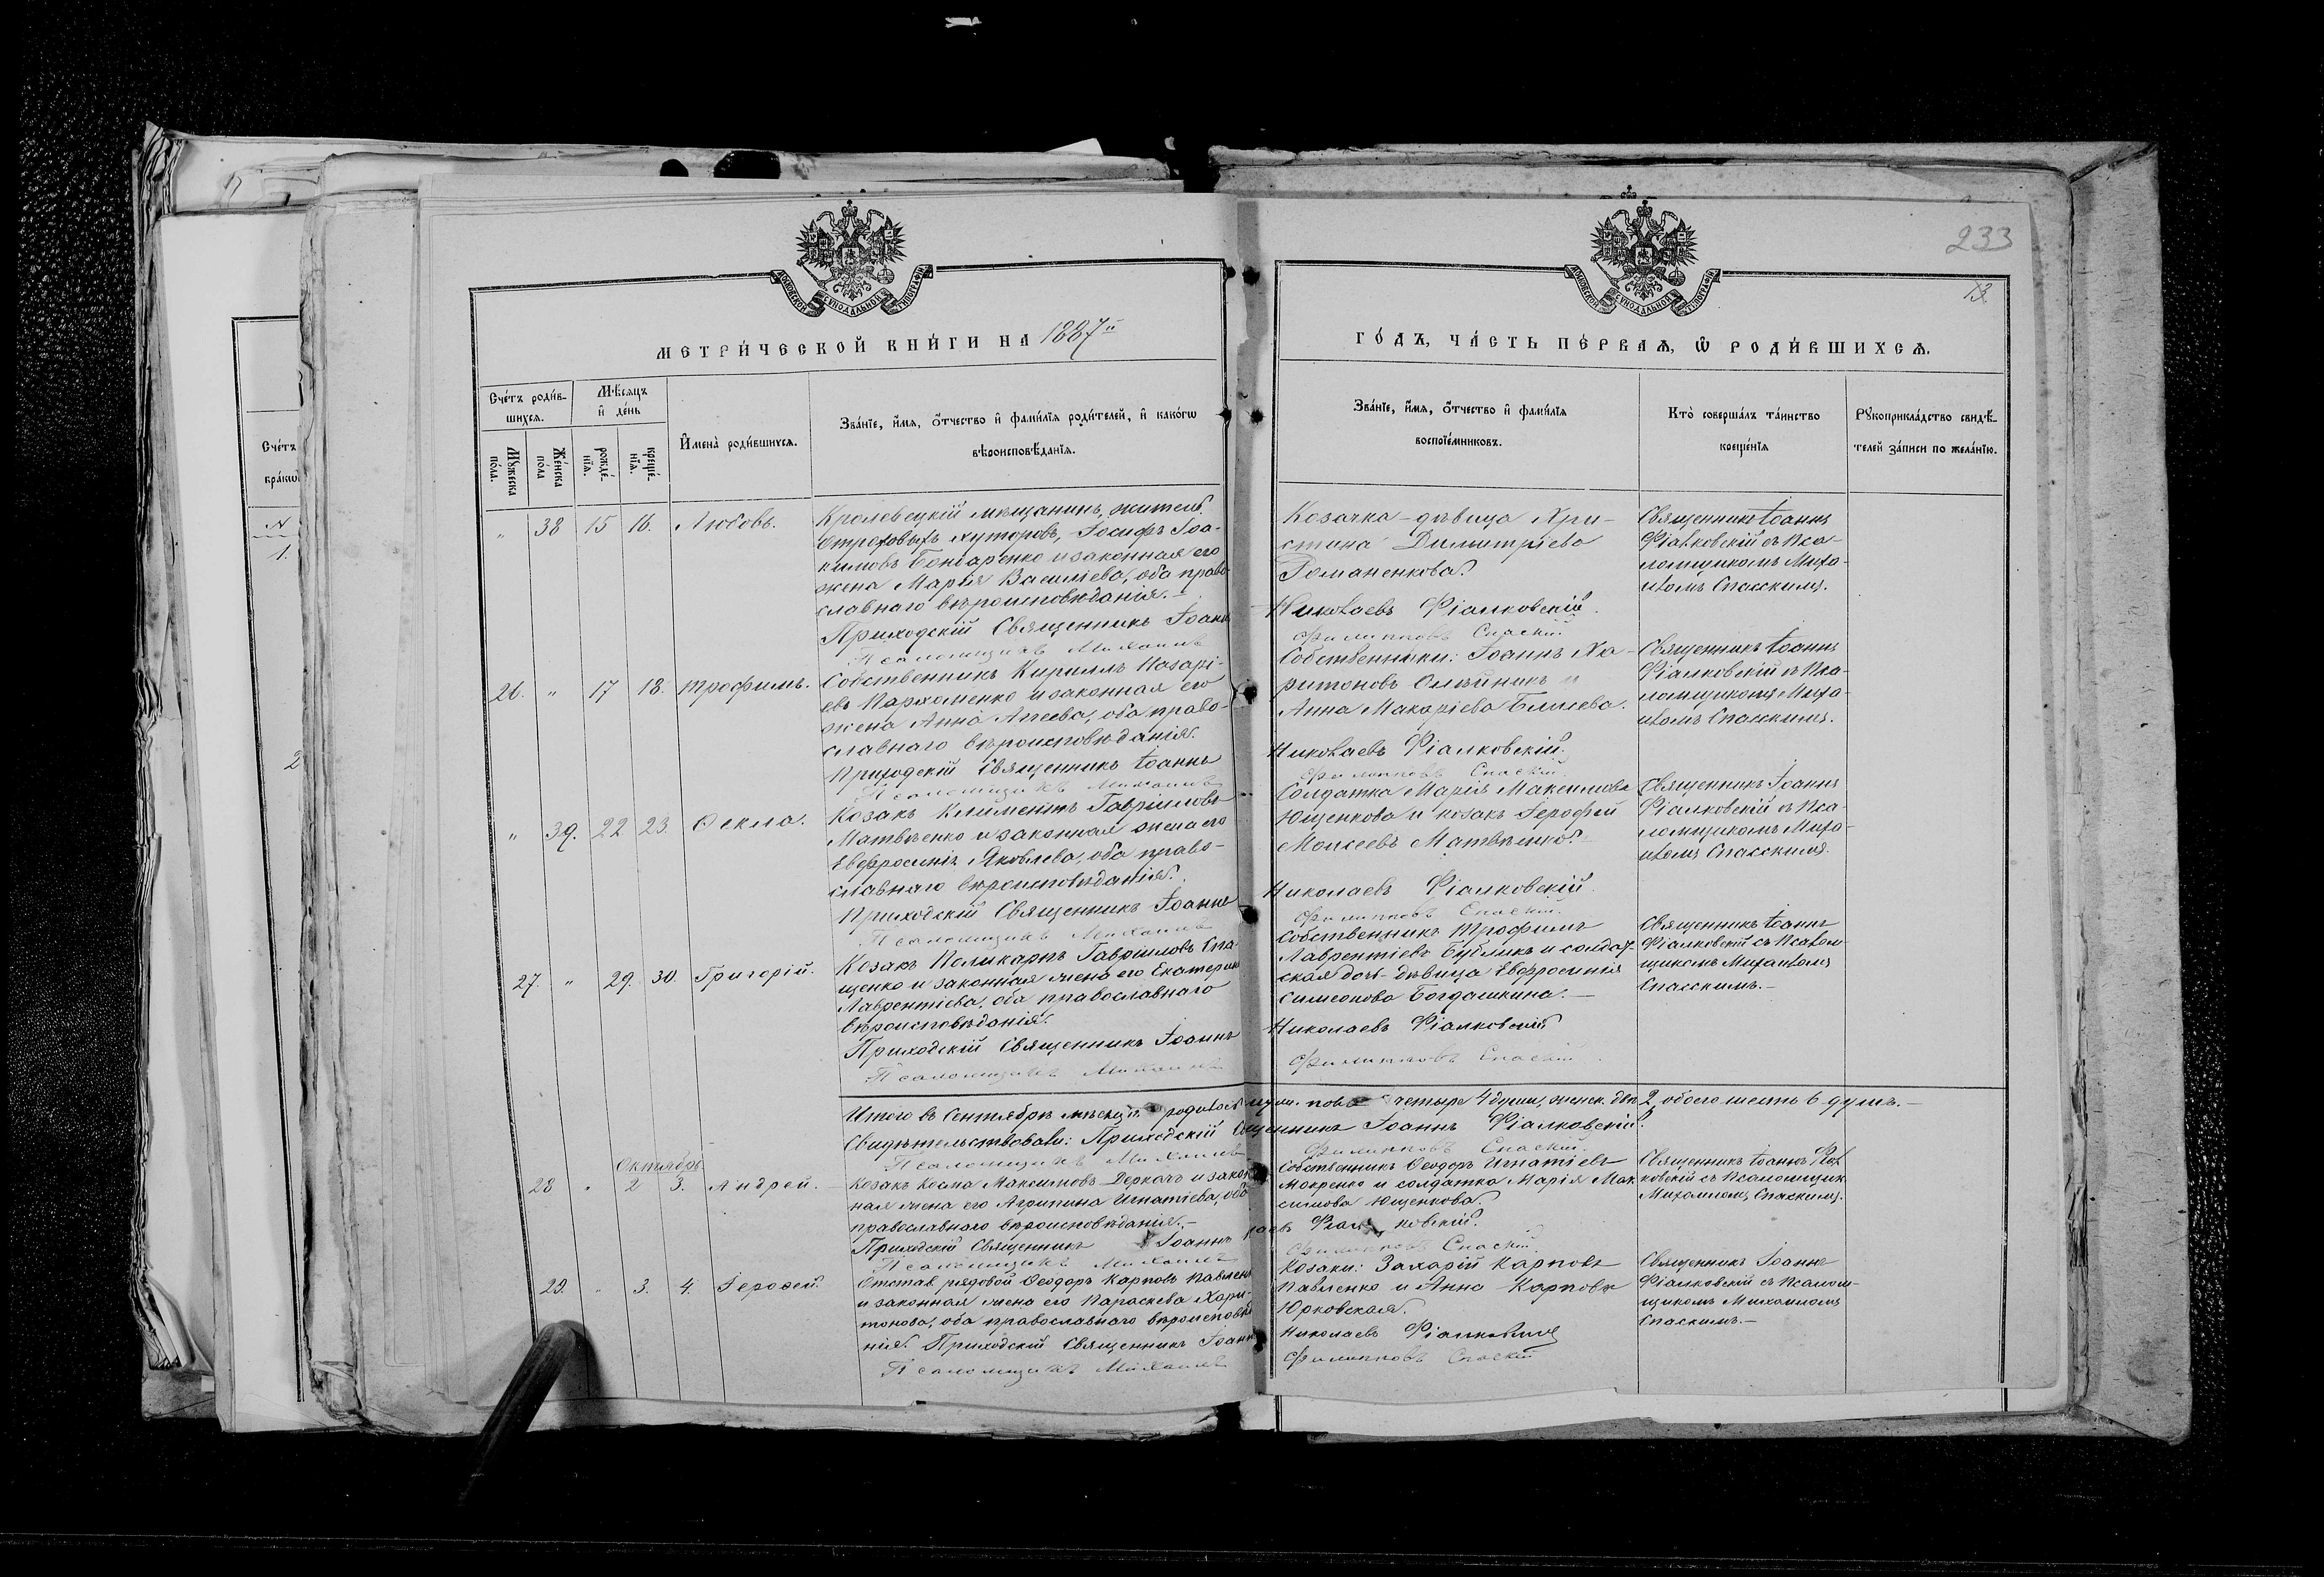 233
13.
МОСКОВСКОЙ СѴНОДАЛЬНОЙ ТИПОГРАФІИ
МОСКОВСКОЙ СѴНОДАЛЬНОЙ ТИПОГРАФІИ
МЕТРИ́ЧЕСКОЙ КНИ́ГИ НА 1887й
ГО́ДЪ, ЧА́СТЬ ПЕ́РВАЯ, Ѡ РОДИ́ВШИХСЯ.
Сче́тъ роди́в-
шихся.
Мꙋжеска по́ла.
Же́нска по́ла
Мѣ́сяцъ и де́нь
рожде́-нїя.
креще́-нїя.
И҆мена̀ роди́вшихся.
Зва́нїе, и҆́мя, о҆́тчество и҆ фами́лїя роди́телей, и҆ како́гѡ
вѣроисповѣ́данїя.
Зва́нїе, и҆́мя, о҆́тчество и҆ фами́лїя
воспрїе́мниковъ.
Кто̀ соверша́лъ та́инство
креще́нїя
Рꙋкоприкла́дство свидѣ́-
телей за́писи по жела́нїю.
Сче́тъ
бра́кѡ
1.
2
" 38 15 16. Любовь.
Кролевецкій мѣщанинъ, житель
хуторовъ, Іосифъ Іоа-
кимовъ Бондаренко и законная его
жена Марія Василіева, оба право-
славнаго вѣроисповѣданія.
Приходскій Священникъ Іоаннъ
Псаломщикъ Михаилъ
Козачка-дѣвица Хри-
стина Димитріева
Романенкова.
Николаевъ Фіалковскій
Филипповъ Спаскій.
Священникъ Іоаннъ
Фіалковскій съ Пса-
ломщикомъ Миха-
иломъ Спасскимъ.
26. " 17 18. Трофимъ.
Собственникъ Кириллъ Назарі-
евъ Пархоменко и законная его
жена Анна Агеева, оба право-
славнаго вѣроисповѣданія.
Приходскій Священникъ Іоаннъ
Псаломщикъ Михаилъ
Собственники: Іоаннъ Ха-
ритоновъ Олѣйникъ и
Анна Макаріева
Николаевъ Фіалковскій.
Филипповъ Спаскій.
Священникъ Іоаннъ
Фіалковскій съ Пса-
ломщикомъ Миха-
иломъ Спасскимъ.
" 39. 22 23. Ѳекла.
Козакъ Климентъ Гавріиловъ
Матвѣенко и законная жена его
Евфросинія Яковлева, оба право-
славнаго вѣроисповѣданія.
Приходскій Священникъ Іоаннъ
Псаломщикъ Михаилъ
Солдатка Марія Максимова
Ющенкова и козакъ Іерофей
Моисеевъ Матвѣенко.
Николаевъ Фіалковскій
Филипповъ Спаскій.
Священникъ Іоаннъ
Фіалковскій съ Пса-
ломщикомъ Миха-
иломъ Спасскимъ.
27. " 29. 30. Григорій.
Козакъ Поликарпъ Гавріиловъ
и законная жена его Екатерина
Лаврентіева, оба православнаго
вѣроисповѣданія.
Приходскій Священникъ Іоаннъ
Псаломщикъ Михаилъ
Собственникъ Трофимъ
Лаврентіевъ Бубликъ и солдат-
ская дочь-дѣвица Евфросинія
Симеонова Богдашкина.
Николаевъ Фіалковскій
Филипповъ Спаскій
Священникъ Іоаннъ
Фіалковскій съ Псалом-
щикомъ Михаиломъ
Спасскимъ.
Итого въ Сентябрѣ мѣсяцѣ родилось муж. пола четыре 4 души, женск. двѣ 2, обоего шесть 6 душъ.
Свидѣтельствовали: Приходскій Священникъ Іоаннъ Фіалковскій.
Псаломщикъ Михаилъ Филипповъ Спаскій.
Октябрь
28 " 2 3. Андрей.
Козакъ Косма Максимовъ Деркачъ и закон-
ная жена его Агрипина Игнатіева, оба
православнаго вѣроисповѣданія.
Приходскій Священникъ Іоаннъ Фіалковскій.
Псаломщикъ Михаилъ Филипповъ Спаскій.
Собственникъ Ѳеодоръ Игнатіевъ
Мокренко и солдатка Марія Мак
симова Ющенкова.
Священникъ Іоаннъ Фіал
ковскій съ Псаломщик.
Михаиломъ Спасскимъ.
29. " 3. 4. Іерофей.
Отстав. рядовой Ѳеодоръ Карповъ Павленко
и законная жена его Параскева Хари-
тонова, оба православнаго вѣроисповѣда
нія. Приходскій Священникъ Іоаннъ
Псаломщикъ Михаилъ
Козаки: Захарій Карповъ
Павленко и Анна Карпова
Юрковская.
Николаевъ Фіалковскій
Филипповъ Спаскій
Священникъ Іоаннъ
Фіалковскій съ Псалом-
щикомъ Михаиломъ
Спасскимъ.